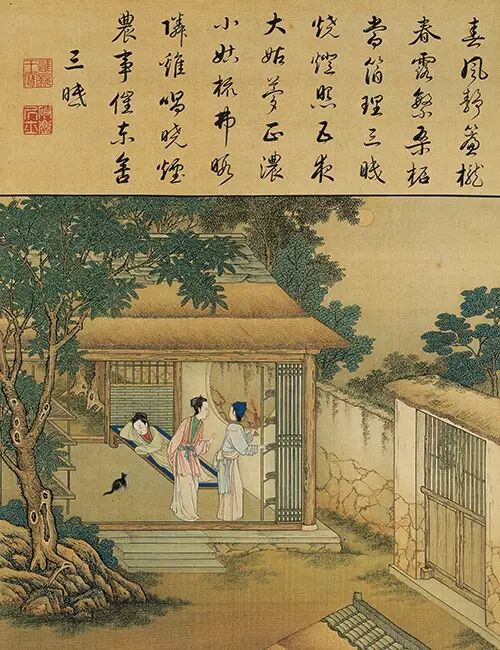 春風静簾櫳
春露繁桑柘
當箔理三眠
燒燈照五夜
大姑夢正濃
小姑梳弗暇
隣雞唱曉煙
農事催東舍
三眠